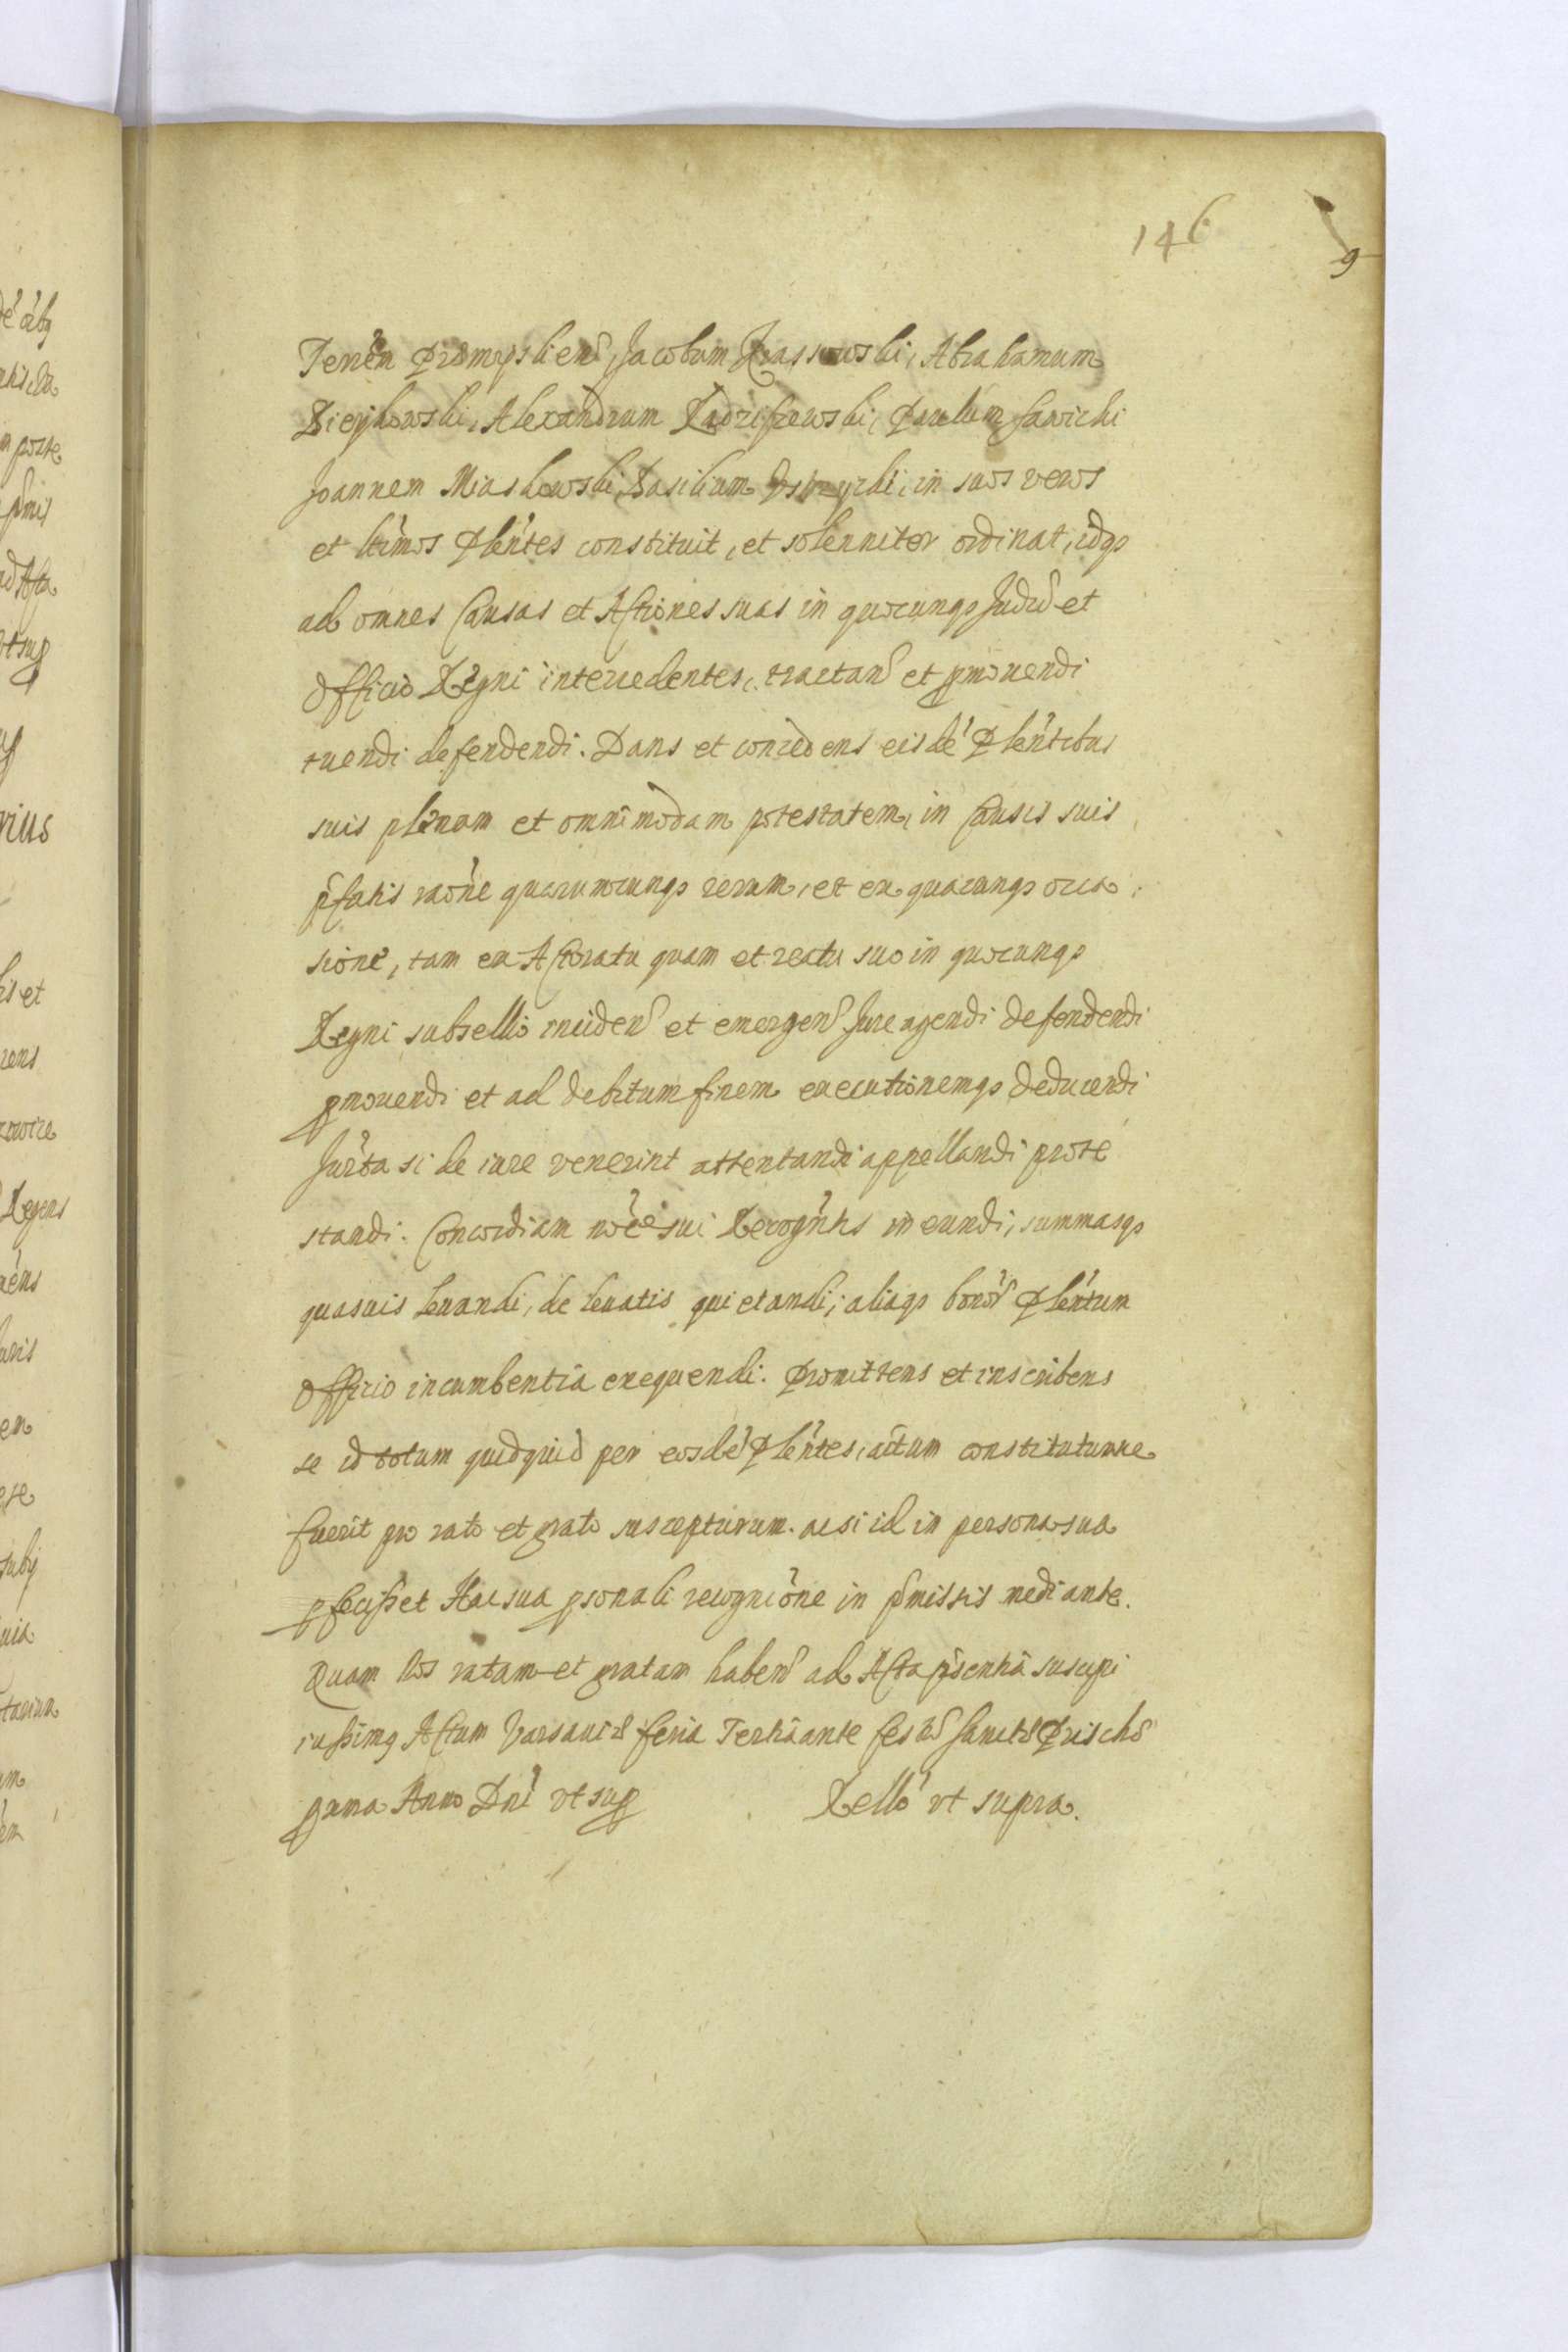 146
9
Terrēn Præmysliens, Jacobum Krassowski, Abrahamum
Alexandrum Paulum Sawicki
Joannem Miaskowski, Basilium Ustrzycki, in suos veros
et ltimos Plentes constituit, et solenniter ordinat, idq3
ad omnes Causas et Actiones suas in quocunq3 Judio et
Officio Regni intercedentes, tractan et pmouendi
tuendi defendendi. Dans et concedens eisdē Plentibus
suis plenam et omnimodam potestatem, in Causis suis
pfatis raone quarumcunq3 rerum, et ex quacunq3 occa
sione, tam ex Actoratu quam et reatu suo in quocunq3
Regni subsellio inciden et emergen Jure agendi defendendi
pmouendi et ad debitum finem executionemq3 deducendi
Jurta si de iure venerint attentandi appellandi prote
standi. Concordiam noie sui Recogntis ineundi, summasq3
quasuis leuandi, de leuatis quietandi; aliaq3 bonor Plentum
Officio incumbentia exequendi. Promittens et inscribens
se id totum quidquid per eosdē Plentes, actum constitutumue
fuerit pro rato et grato suscepturum. ac si id in persona sua
pfecisset Hac sua psonali recognicione in pmissis mediante.
Quam Nos ratam et gratam haben ad Acta psentia suscipi
iussimq Actum Varsauiæ feria Tertia ante festū Sanctæ Priscæ
Anno Dni vt sup Rello vt supra.